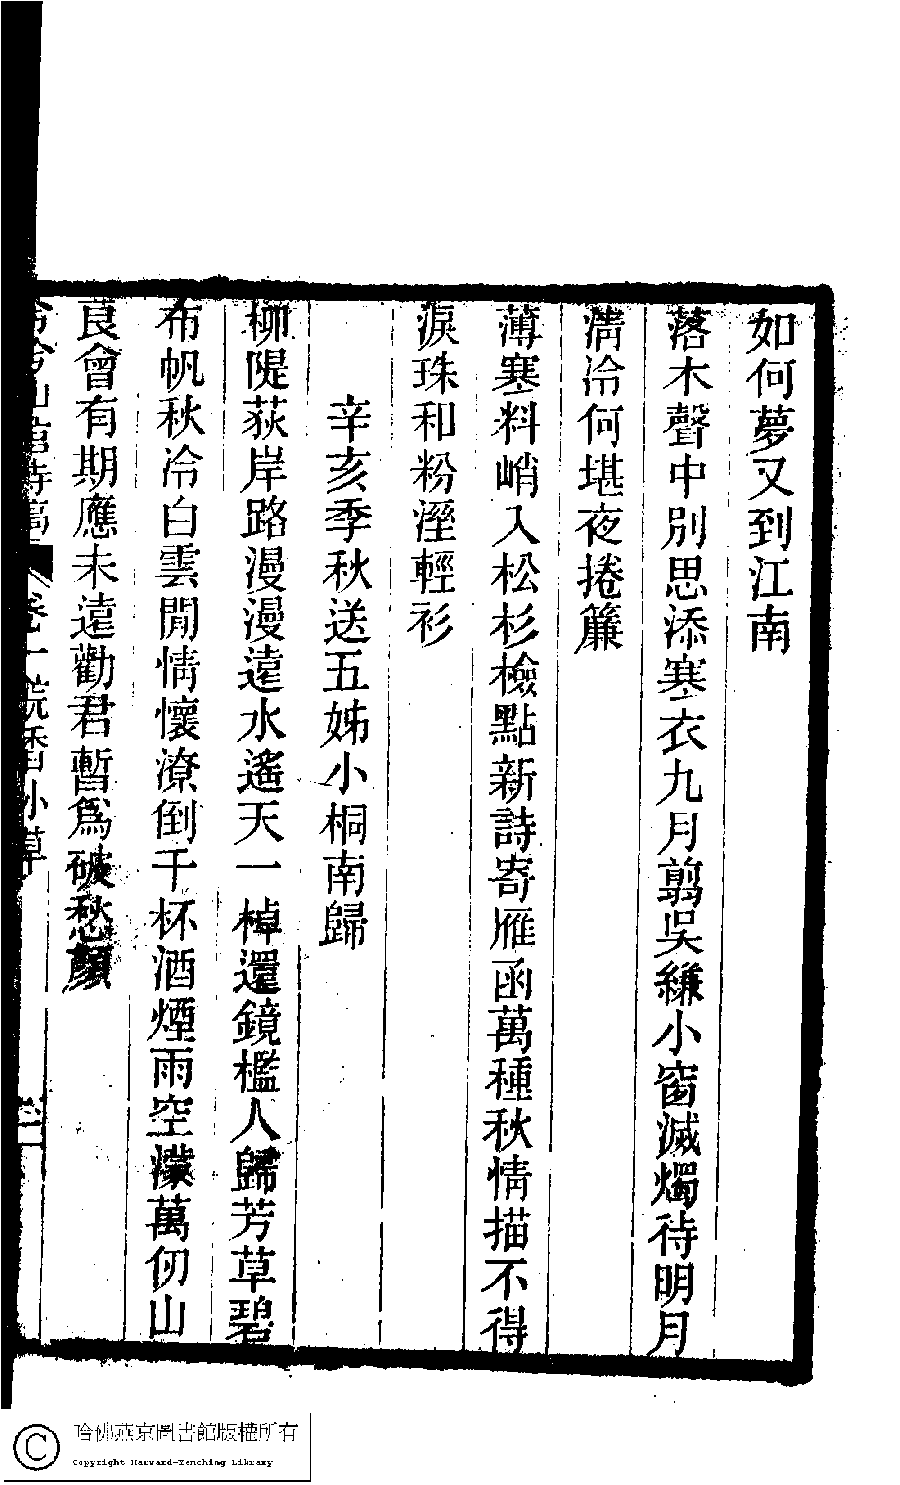 如何夢又到江南
落木聲中別思添寒衣九月翦吳縑小窗滅燭待明月
淸冷何堪夜捲簾
薄寒料峭入松杉檢點新詩寄雁函萬種秋情描不得
淚珠和粉溼輕衫
辛亥季秋送五姊小桐南歸
柳隄荻岸路漫漫遠水遙天一棹還鏡檻人歸芳草碧
布帆秋冷白雲閒情懷潦倒千杯酒煙雨空濛萬仞山
良會有期應未遠勸君暫爲破愁顏
冷吟山館詩蒿 卷一 小草
哈佛燕京圖書館版權所有
Copyright Harvard-Yenching Library